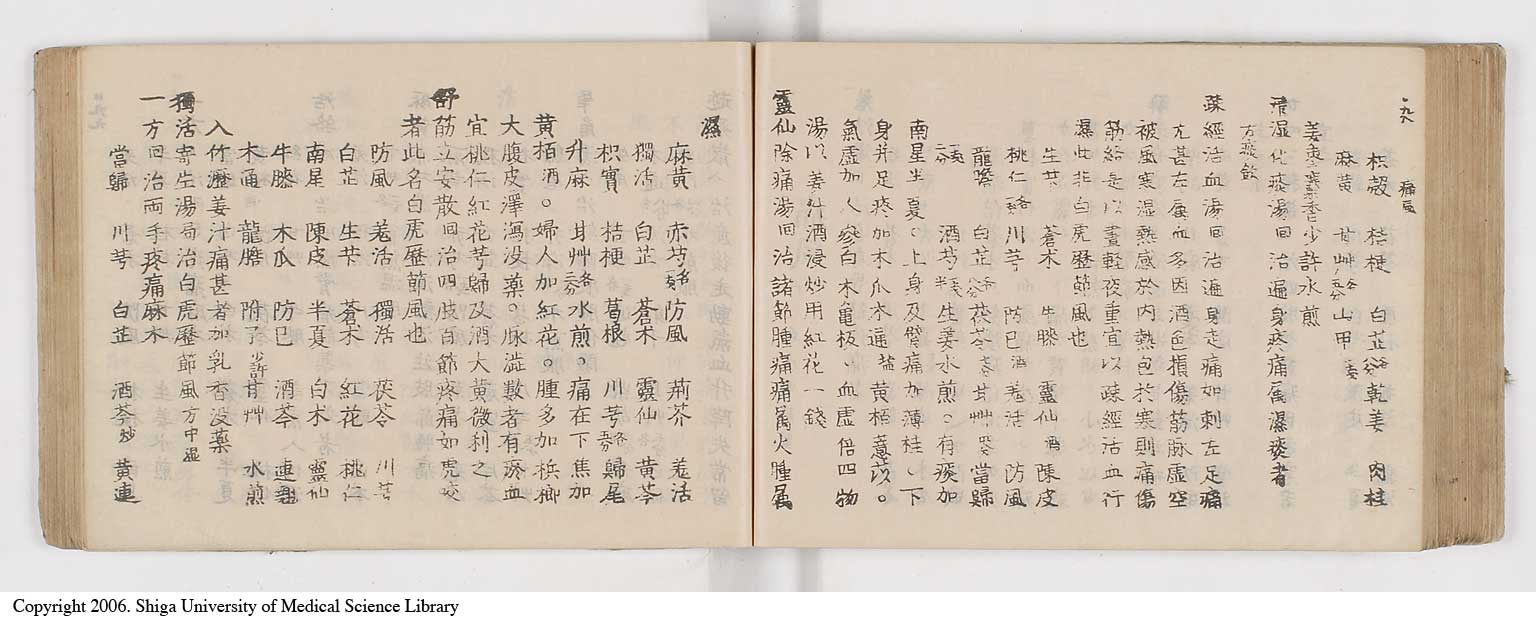 痛風
枳殼 桔梗 白芷 各 乾姜 肉桂
麻黄 甘艸 各 山甲
姜棗藿香少許水煎
清湿化痰湯 回 治遍身疼痛属濕痰者
方痰飲
疎經活血湯 回 治遍身走痛如刺左足痛
尤甚左属血多因酒色損傷筋脉虚空
被風寒湿熱感於内熱包於寒則痛傷
筋絡是以晝輕夜重宜以疎經活血行
濕此非白虎歴節風也
生芐 蒼朮 牛膝 靈仙 酒 陳皮
桃仁 川芎 防已 酒 羗活 防風
龍膽 白芷 茯苓 甘艸 當歸
酒芍 生姜水煎。有痰加
南星半夏。上身及臂痛加薄桂。下
身并足疼加木瓜木通 黄栢薏苡。
氣虚加人參白朮亀板血虚倍四物
湯以姜汁酒浸炒用紅花一錢
靈仙除痛湯 回 治諸節腫痛痛属火腫属
濕
麻黄 赤芍 防風 荊芥 羗活
獨活 白芷 蒼朮 靈仙 黄芩
枳實 桔梗 葛根 川芎 各 歸尾
升麻 甘艸 各 水煎。痛在下焦加
黄栢酒。婦人加紅花。腫多加梹榔
大腹皮澤瀉没薬。脉澁數者有瘀血
宜桃仁紅花芎歸及酒大黄微利之
舒筋立安散 回 治四肢百節疼痛如虎咬
者此名白虎歴節風也
防風 羗活 獨活 茯苓 川芎
白芷 生芐 蒼朮 紅花 桃仁
南星 陳皮 半夏 白朮 靈仙
牛膝 木瓜 防已 酒芩 連翹
木通 龍膽 附子 少許 甘艸 水煎
入竹瀝姜汁痛甚者加乳香没薬
獨活寄生湯 局 治白虎歴節風 方中湿
一方 回 治両手疼痛麻木
當歸 川芎 白芷 酒芩 炒 黄連
Copyright 2006. Shiga University of Medical Science Library